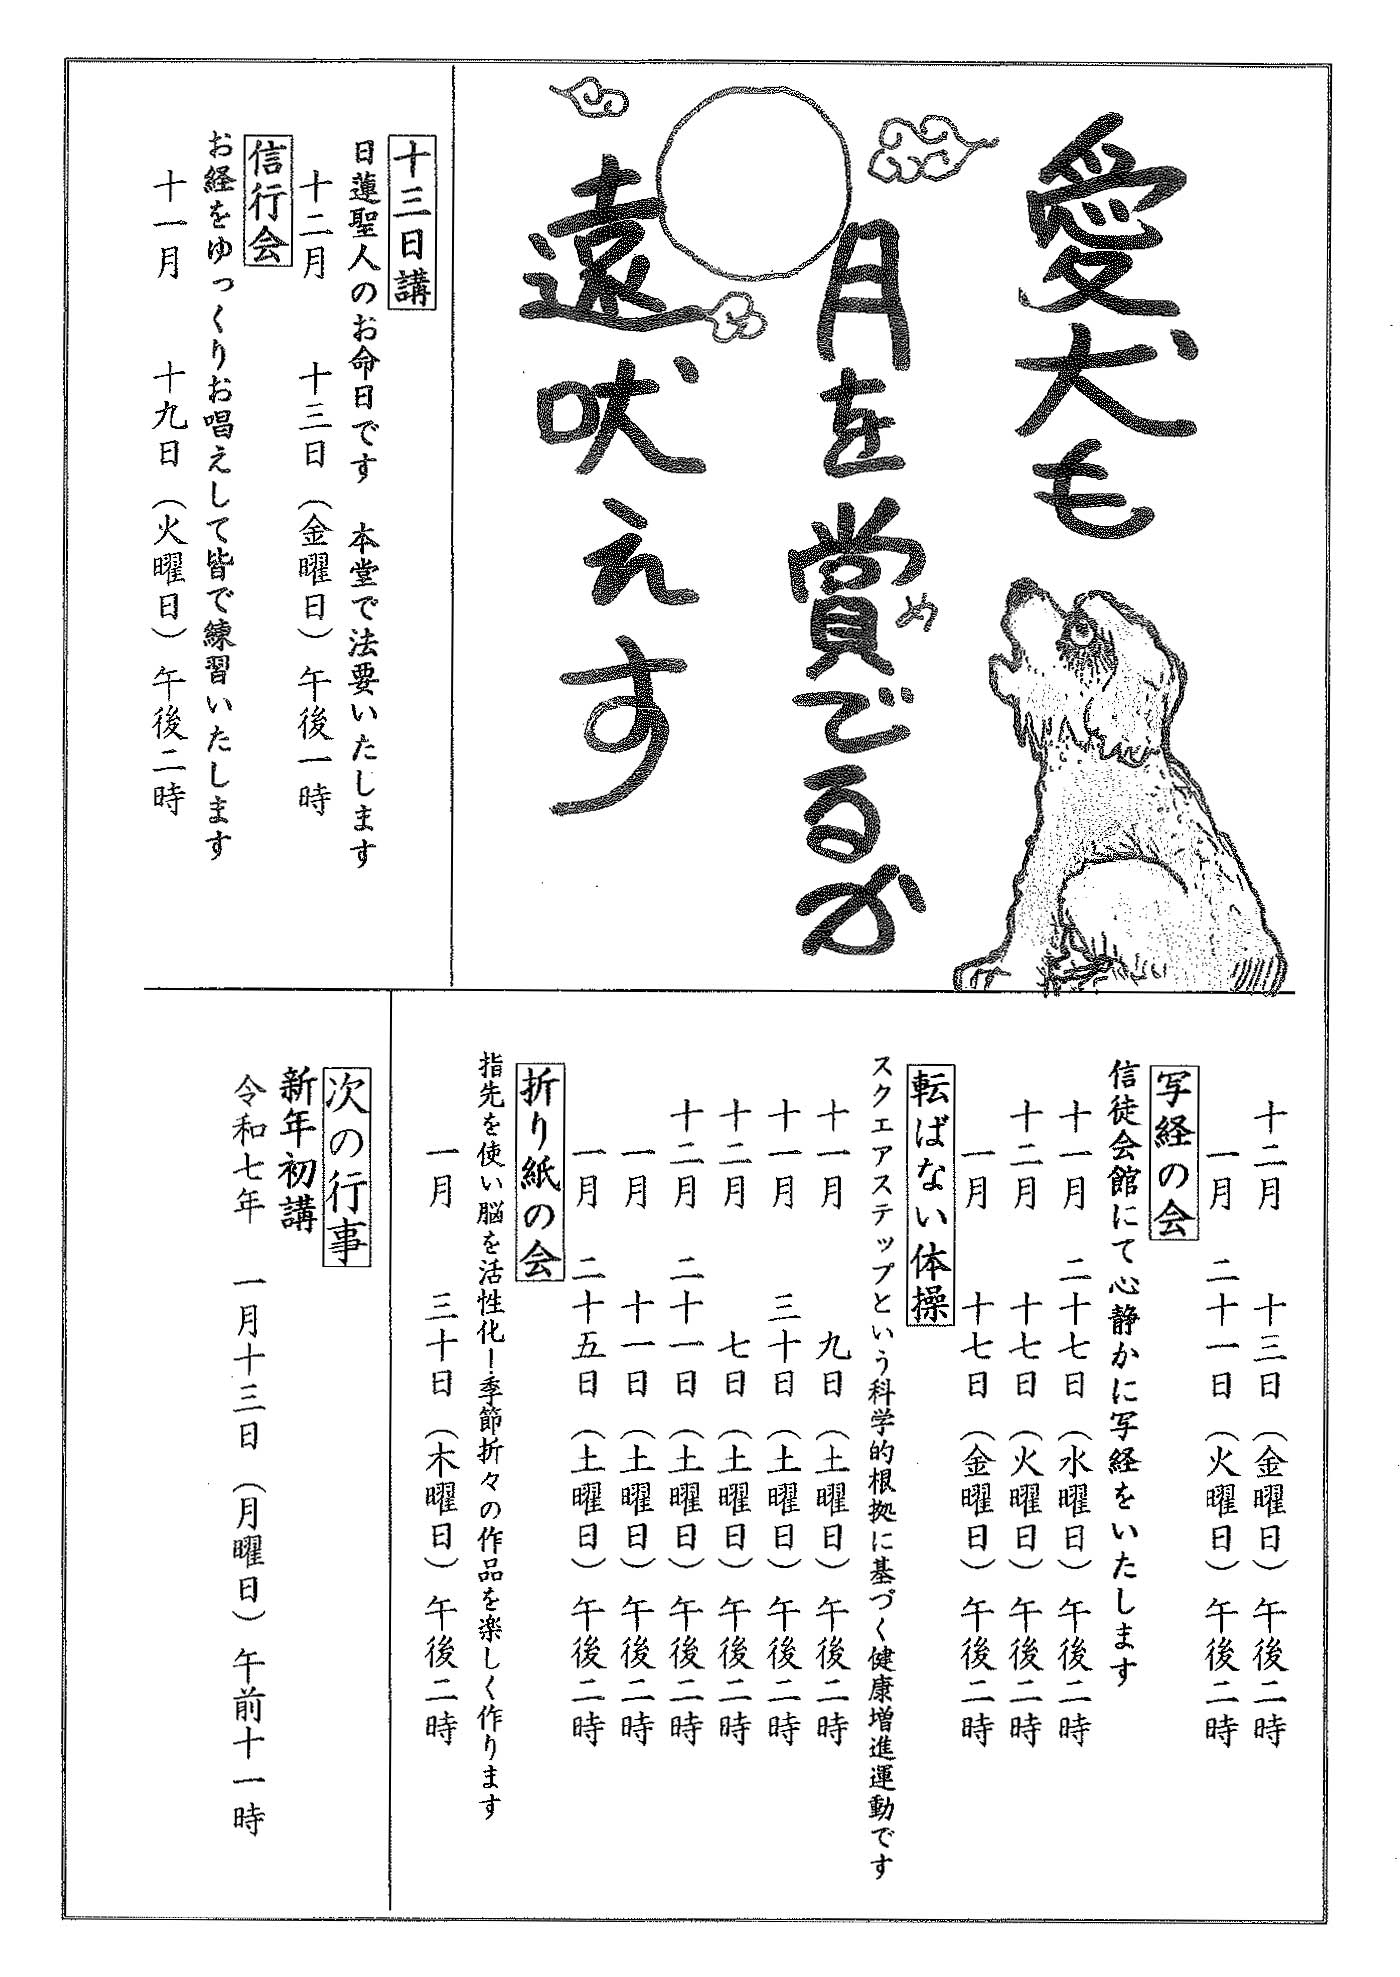 愛犬も
月を賞でるか
め
遠吠えす
十三日講
日蓮聖人のお命日です　本堂で法要いたします
十二月　十三日（金曜日）午後一時
信行会
お経をゆっくりお唱えして皆で練習いたします
十一月　十九日（火曜日）午後二時
十二月　十三日（金曜日）午後二時
一月　二十一日（火曜日）午後二時
写経の会
信徒会館にて心静かに写経をいたします
十一月　二十七日（水曜日）午後二時
十二月　十七日（火曜日）午後二時
一月　十七日（金曜日）午後二時
転ばない体操
スクエアステップという科学的根拠に基づく健康増進運動です
十一月　九日（土曜日）午後二時
十一月　三十日（土曜日）午後二時
十二月　七日（土曜日）午後二時
十二月　二十一日（土曜日）午後二時
一月　十一日（土曜日）午後二時
一月　二十五日（土曜日）午後二時
折り紙の会
指先を使い脳を活性化！季節折々の作品を楽しく作ります
一月　三十日（木曜日）午後二時
次の行事
新年初講
令和七年　一月十三日（月曜日）午前十一時